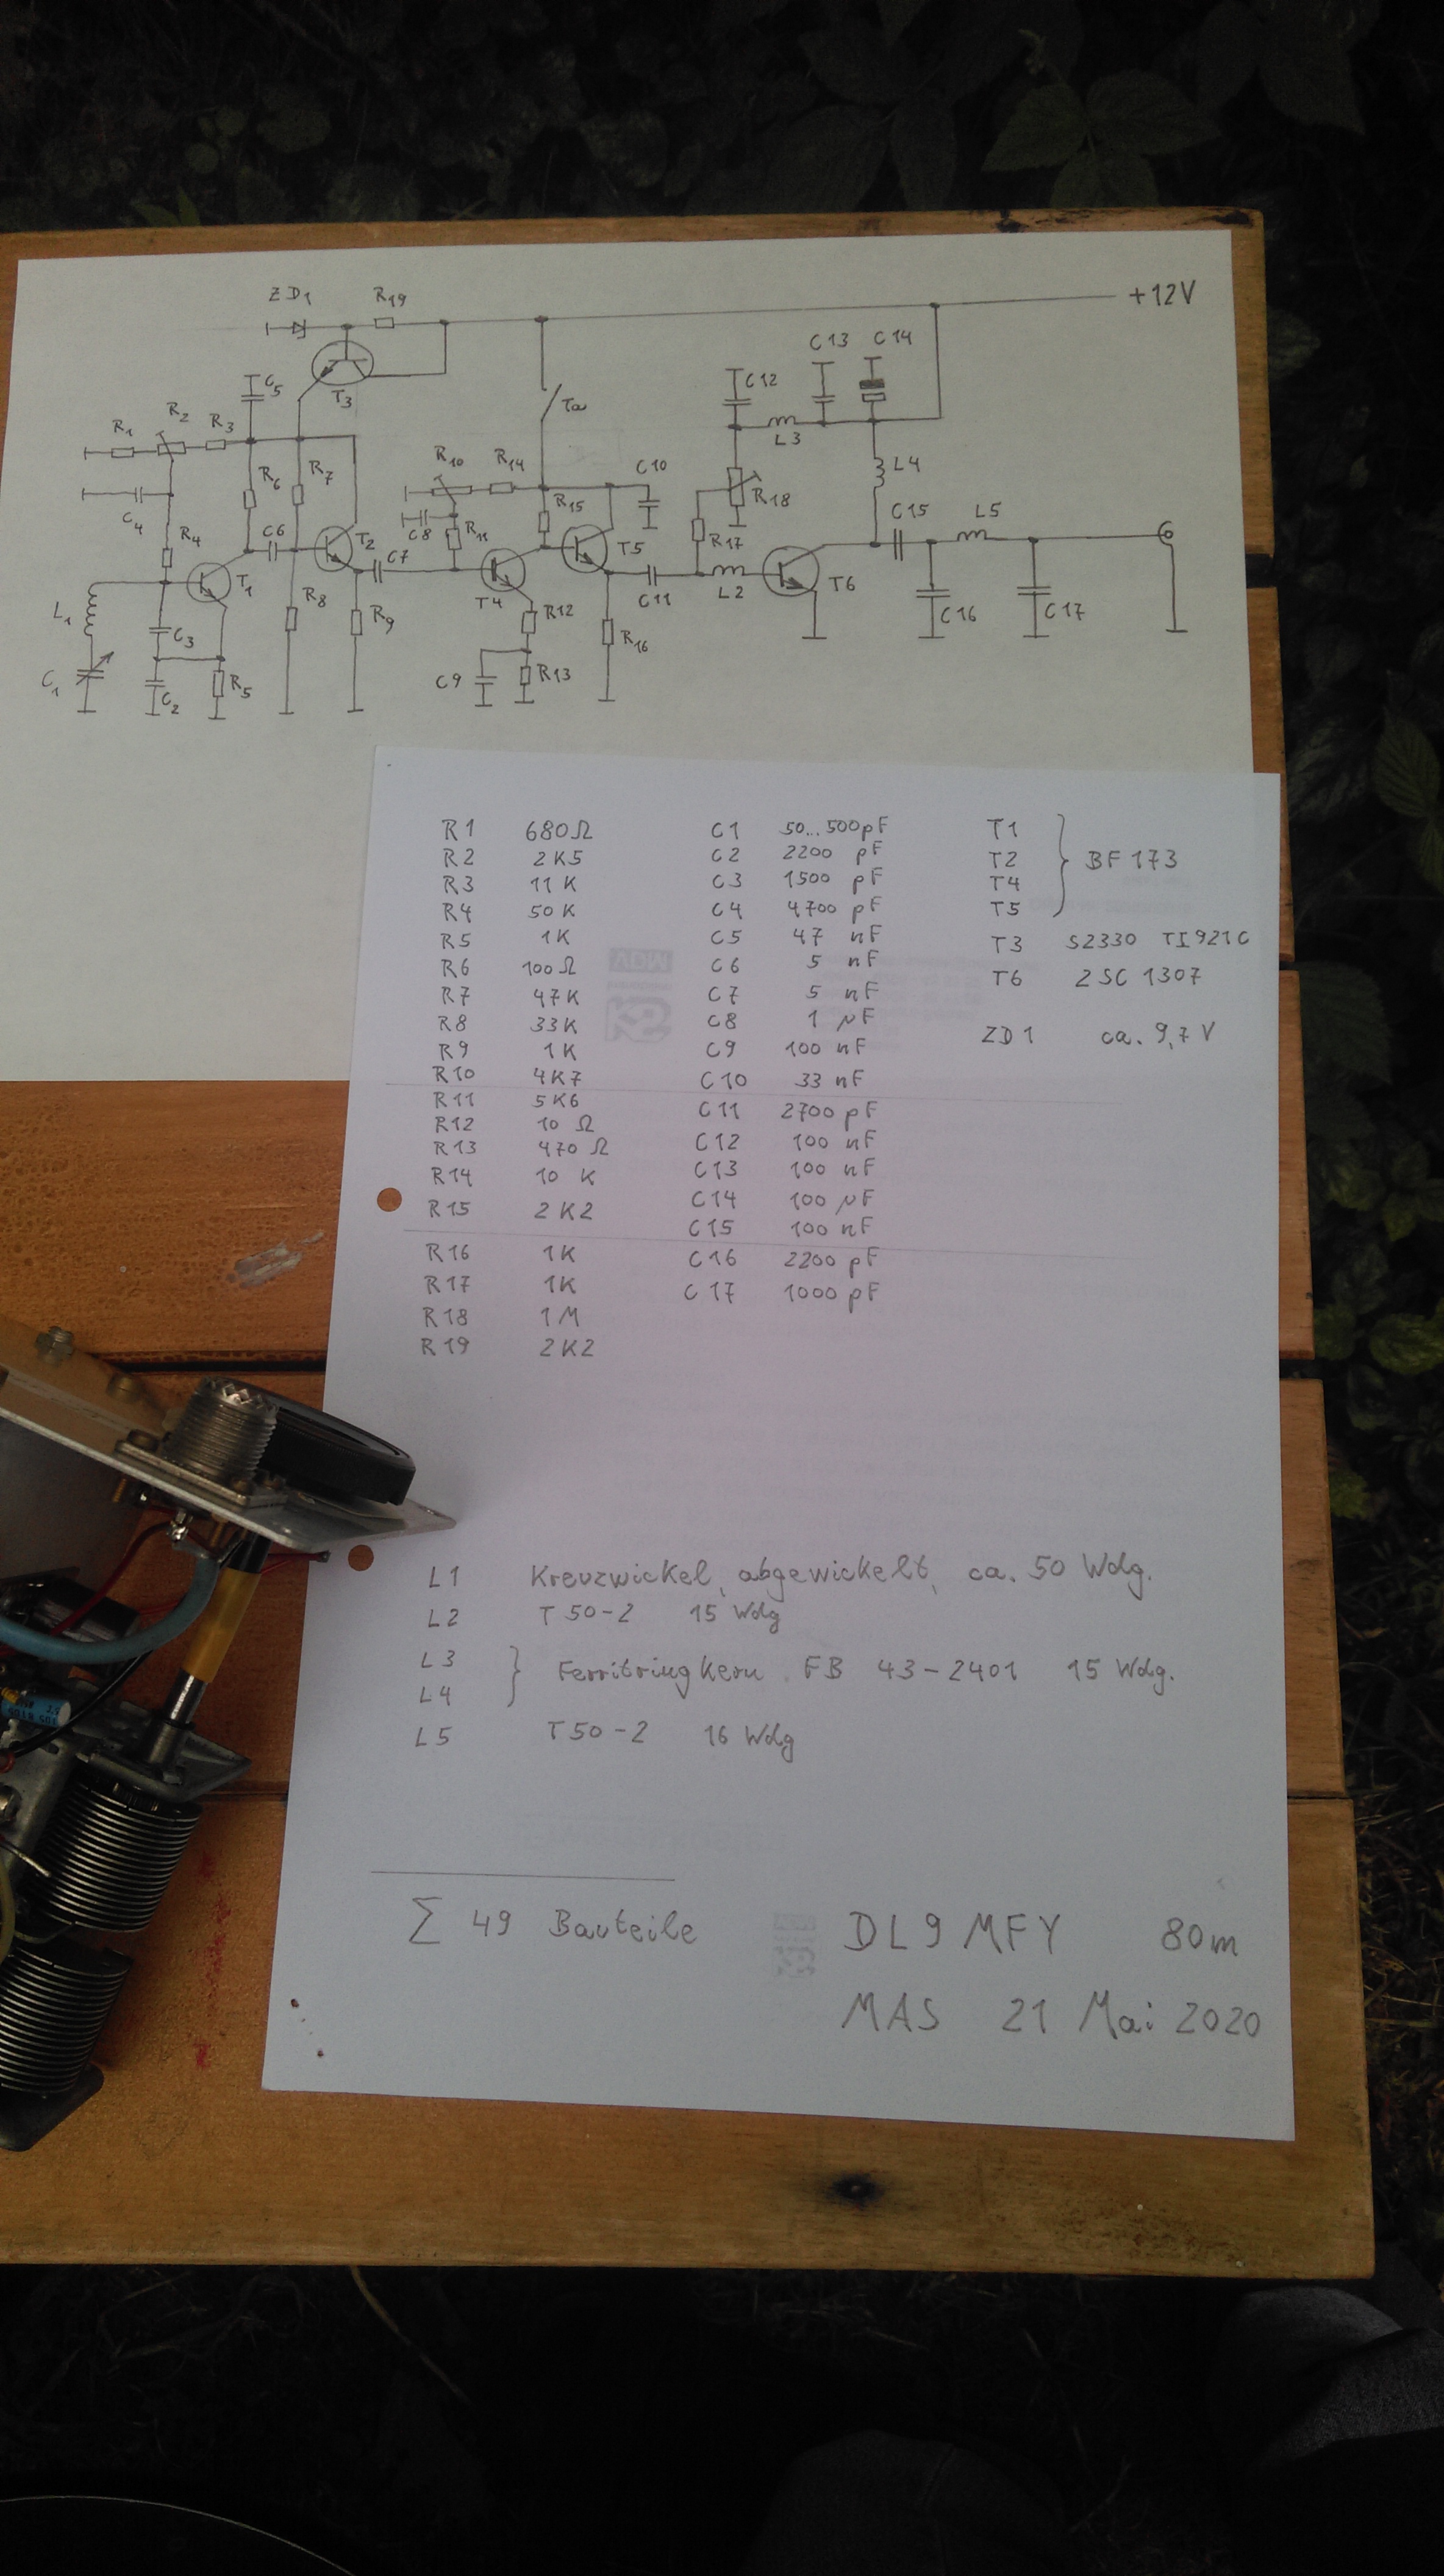 ZD1 R19 +12V
C13 C14
T3 C5 C12
R1 R2 R3 Ta
L3
R10 R14 C10 L4
R6 R7 R15 R18
C4 C8 R11 C15 L5
R4 C6 T2 C7 T5 R17
T1 T4 C11 L2 T6
L1 R8 R9 R12 R16 C16 C17
C3
C1 C2 R5 C9 R13
R1 680Ω C1 50...500pF T1
R2 2K5 C2 2200 pF T2 BF 173
R3 11 K C3 1500 pF T4
R4 50 K C4 4700 pF T5
R5 1K C5 47 nF T3 S2330 TI921C
R6 100Ω C6 5 nF T6 2SC 1307
R7 47K C7 5 nF
R8 33K C8 1 µF ZD1 ca. 9,7 V
R9 1K C9 100 nF
R10 4K7 C10 33 nF
R11 5K6 C11 2700 pF
R12 10 Ω C12 100 nF
R13 470 Ω C13 100 nF
R14 10 K C14 100 µF
R15 2K2 C15 100 nF
R16 1K C16 2200 pF
R17 1K C17 1000 pF
R18 1M
R19 2K2
L1 Kreuzwickel, abgewickelt, ca. 50 Wdg.
L2 T 50-2 15 Wdg
L3
L4 Ferritringkern FB 43-2401 15 Wdg.
L5 T50-2 16 Wdg
Σ 49 Bauteile DL9MFY 80m
MAS 21 Mai 2020